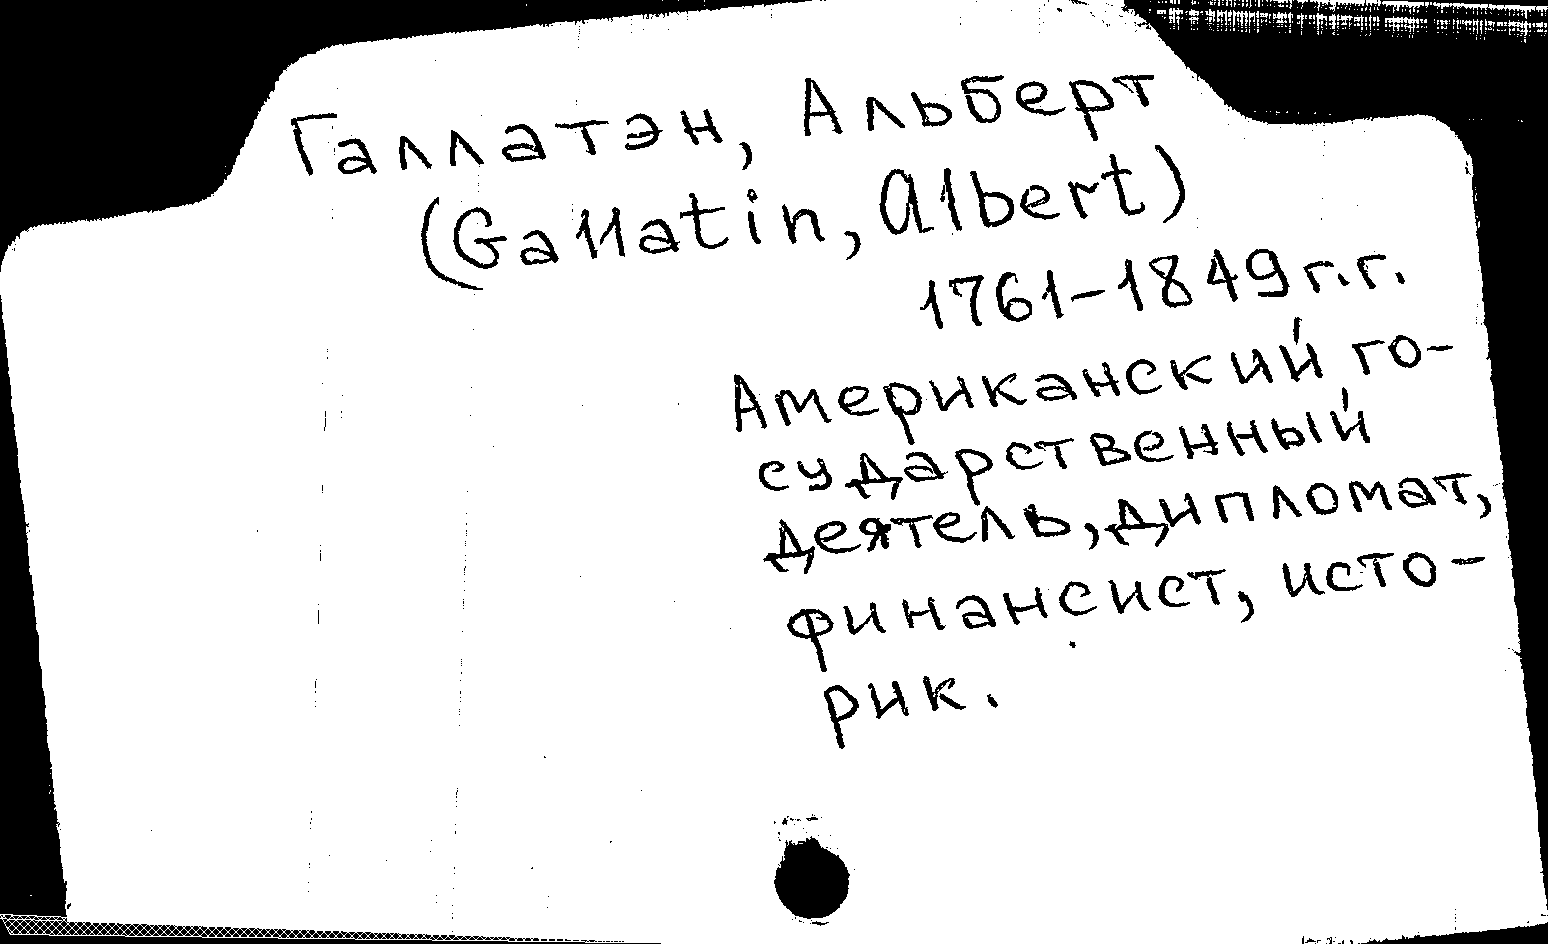 Галлатэн, Альберт
(Gallatin, Albert)
1761-1849 г.г.
Американский го-
сударственный
деятель, дипломат,
финансист, исто-
рик.